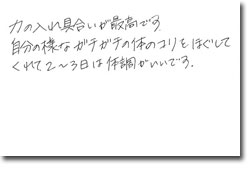 力の入れ具合いが最高です
自分の様なガチガチの体のコリをほぐして
くれて2~3日は体調がいいです.